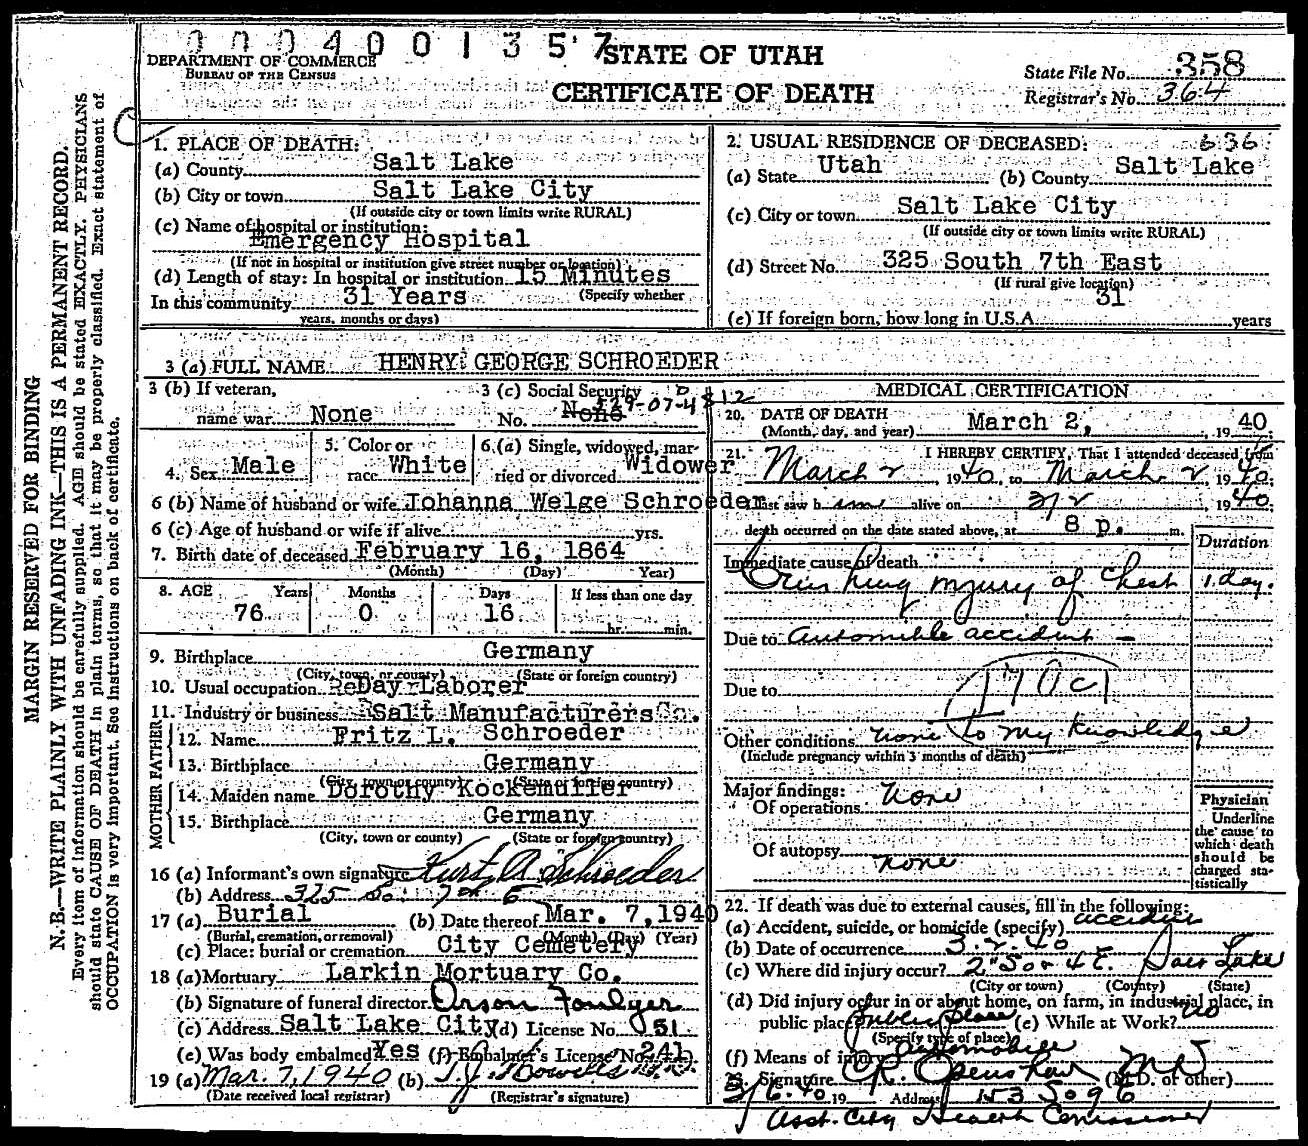 0004001357
STATE OF UTAH
DEPARTMENT OF COMMERCE
BUREAU OF THE CENSUS
CERTIFICATE OF DEATH
State File No. 358
Registrar's No. 364
MARGIN RESERVED FOR BINDING
N. B.—WRITE PLAINLY WITH UNFADING INK—THIS IS A PERMANENT RECORD.
Every item of information should be carefully supplied. AGE should be stated EXACTLY. PHYSICIANS
should state CAUSE OF DEATH in plain terms, so that it may be properly classified. Exact statement of
OCCUPATION is very important. See instructions on back of certificate.
1. PLACE OF DEATH:
(a) County Salt Lake
(b) City or town Salt Lake City
(If outside city or town limits write RURAL)
(c) Name of hospital or institution:
Emergency Hospital
(If not in hospital or institution give street number or location)
(d) Length of stay: In hospital or institution 15 Minutes
In this community 31 Years (Specify whether
years, months or days)
2. USUAL RESIDENCE OF DECEASED: 636
(a) State Utah (b) County Salt Lake
(c) City or town Salt Lake City
(If outside city or town limits write RURAL)
(d) Street No. 325 South 7th East
(If rural give location)
(e) If foreign born, how long in U.S.A. 31 years
3 (a) FULL NAME HENRY GEORGE SCHROEDER
3 (b) If veteran,
name war None
3 (c) Social Security
No. None 529-07-4812
4. Sex Male
5. Color or
race White
6.(a) Single, widowed, mar-
ried or divorced Widower
6 (b) Name of husband or wife Johanna Welge Schroeder
6 (c) Age of husband or wife if alive yrs.
7. Birth date of deceased February 16, 1864
(Month) (Day) Year)
8. AGE Years Months Days If less than one day
76 0 16 hr. min.
9. Birthplace Germany
(City, town, or county) (State or foreign country)
10. Usual occupation Day Laborer
11. Industry or business Salt Manufacturers Co.
FATHER
12. Name Fritz L. Schroeder
13. Birthplace Germany
(City, town or county) (State or foreign country)
MOTHER
14. Maiden name Dorothy Kockemuller
15. Birthplace Germany
(City, town or county) (State or foreign country)
16 (a) Informant's own signature Kurt A Schroeder
(b) Address 325 So. 7th E
17 (a) Burial (b) Date thereof Mar. 7, 1940
(Burial, cremation, or removal) (Month) (Day) (Year)
(c) Place: burial or cremation City Cemetery
18 (a) Mortuary Larkin Mortuary Co.
(b) Signature of funeral director Orson Foulger
(c) Address Salt Lake City (d) License No. 51
(e) Was body embalmed? Yes (f) Embalmer's License No. 241
19 (a) Mar. 7, 1940 (b) T.J. Howells
(Date received local registrar) (Registrar's signature)
MEDICAL CERTIFICATION
20. DATE OF DEATH
(Month, day, and year) March 2, 19 40
21. I HEREBY CERTIFY, That I attended deceased from
March 2, 19 40, to March 2, 19 40;
I last saw him alive on 3/2 19 40;
death occurred on the date stated above, at 8 p. m.
Duration
Immediate cause of death
Crushing injury of chest 1 day.
Due to Automobile accident —
Due to
170c1
Other conditions none to my knowledge
(Include pregnancy within 3 months of death)
Major findings:
Of operations none
Of autopsy none
Physician
Underline
the cause to
which death
should be
charged sta-
tistically
22. If death was due to external causes, fill in the following:
(a) Accident, suicide, or homicide (specify) accident
(b) Date of occurrence 3-2-40
(c) Where did injury occur? 2nd So & 4 E. Salt Lake
(City or town) (County) (State)
(d) Did injury occur in or about home, on farm, in industrial place, in
public place? public place (e) While at Work? no
(Specify type of place)
(f) Means of injury automobile
23. Signature C.R. Openshaw MD (M.D. or other)
3/6-40 19 Address 153 So 9 E
Asst. City Health Commissioner